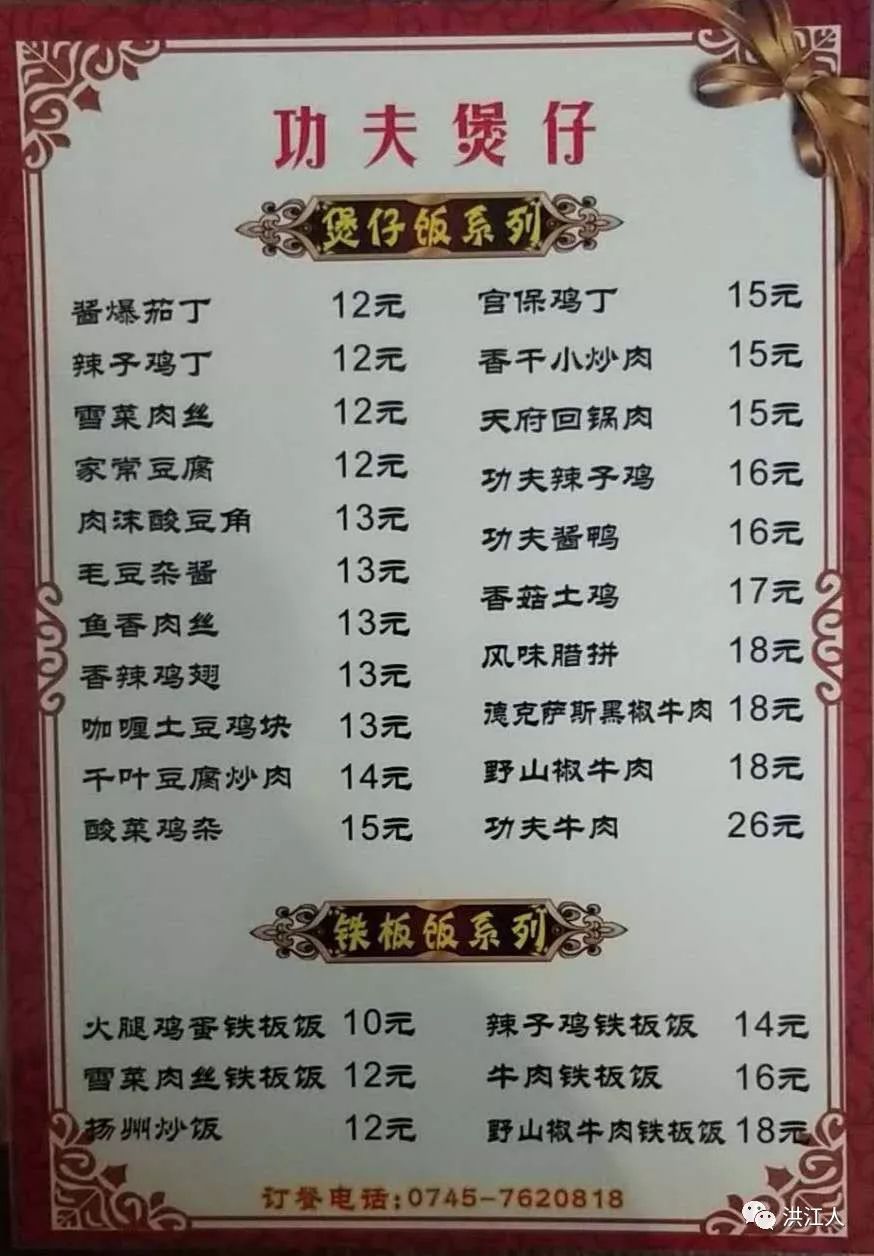 功夫煲仔
煲仔饭系列
酱爆茄丁 12元
辣子鸡丁 12元
雪菜肉丝 12元
家常豆腐 12元
肉沫酸豆角 13元
毛豆杂酱 13元
鱼香肉丝 13元
香辣鸡翅 13元
咖喱土豆鸡块 13元
千叶豆腐炒肉 14元
酸菜鸡杂 15元
宫保鸡丁 15元
香干小炒肉 15元
天府回锅肉 15元
功夫辣子鸡 16元
功夫酱鸭 16元
香菇土鸡 17元
风味腊拼 18元
德克萨斯黑椒牛肉 18元
野山椒牛肉 18元
功夫牛肉 26元
铁板饭系列
火腿鸡蛋铁板饭 10元
雪菜肉丝铁板饭 12元
扬州炒饭 12元
辣子鸡铁板饭 14元
牛肉铁板饭 16元
野山椒牛肉铁板饭 18元
订餐电话:0745-7620818
洪江人